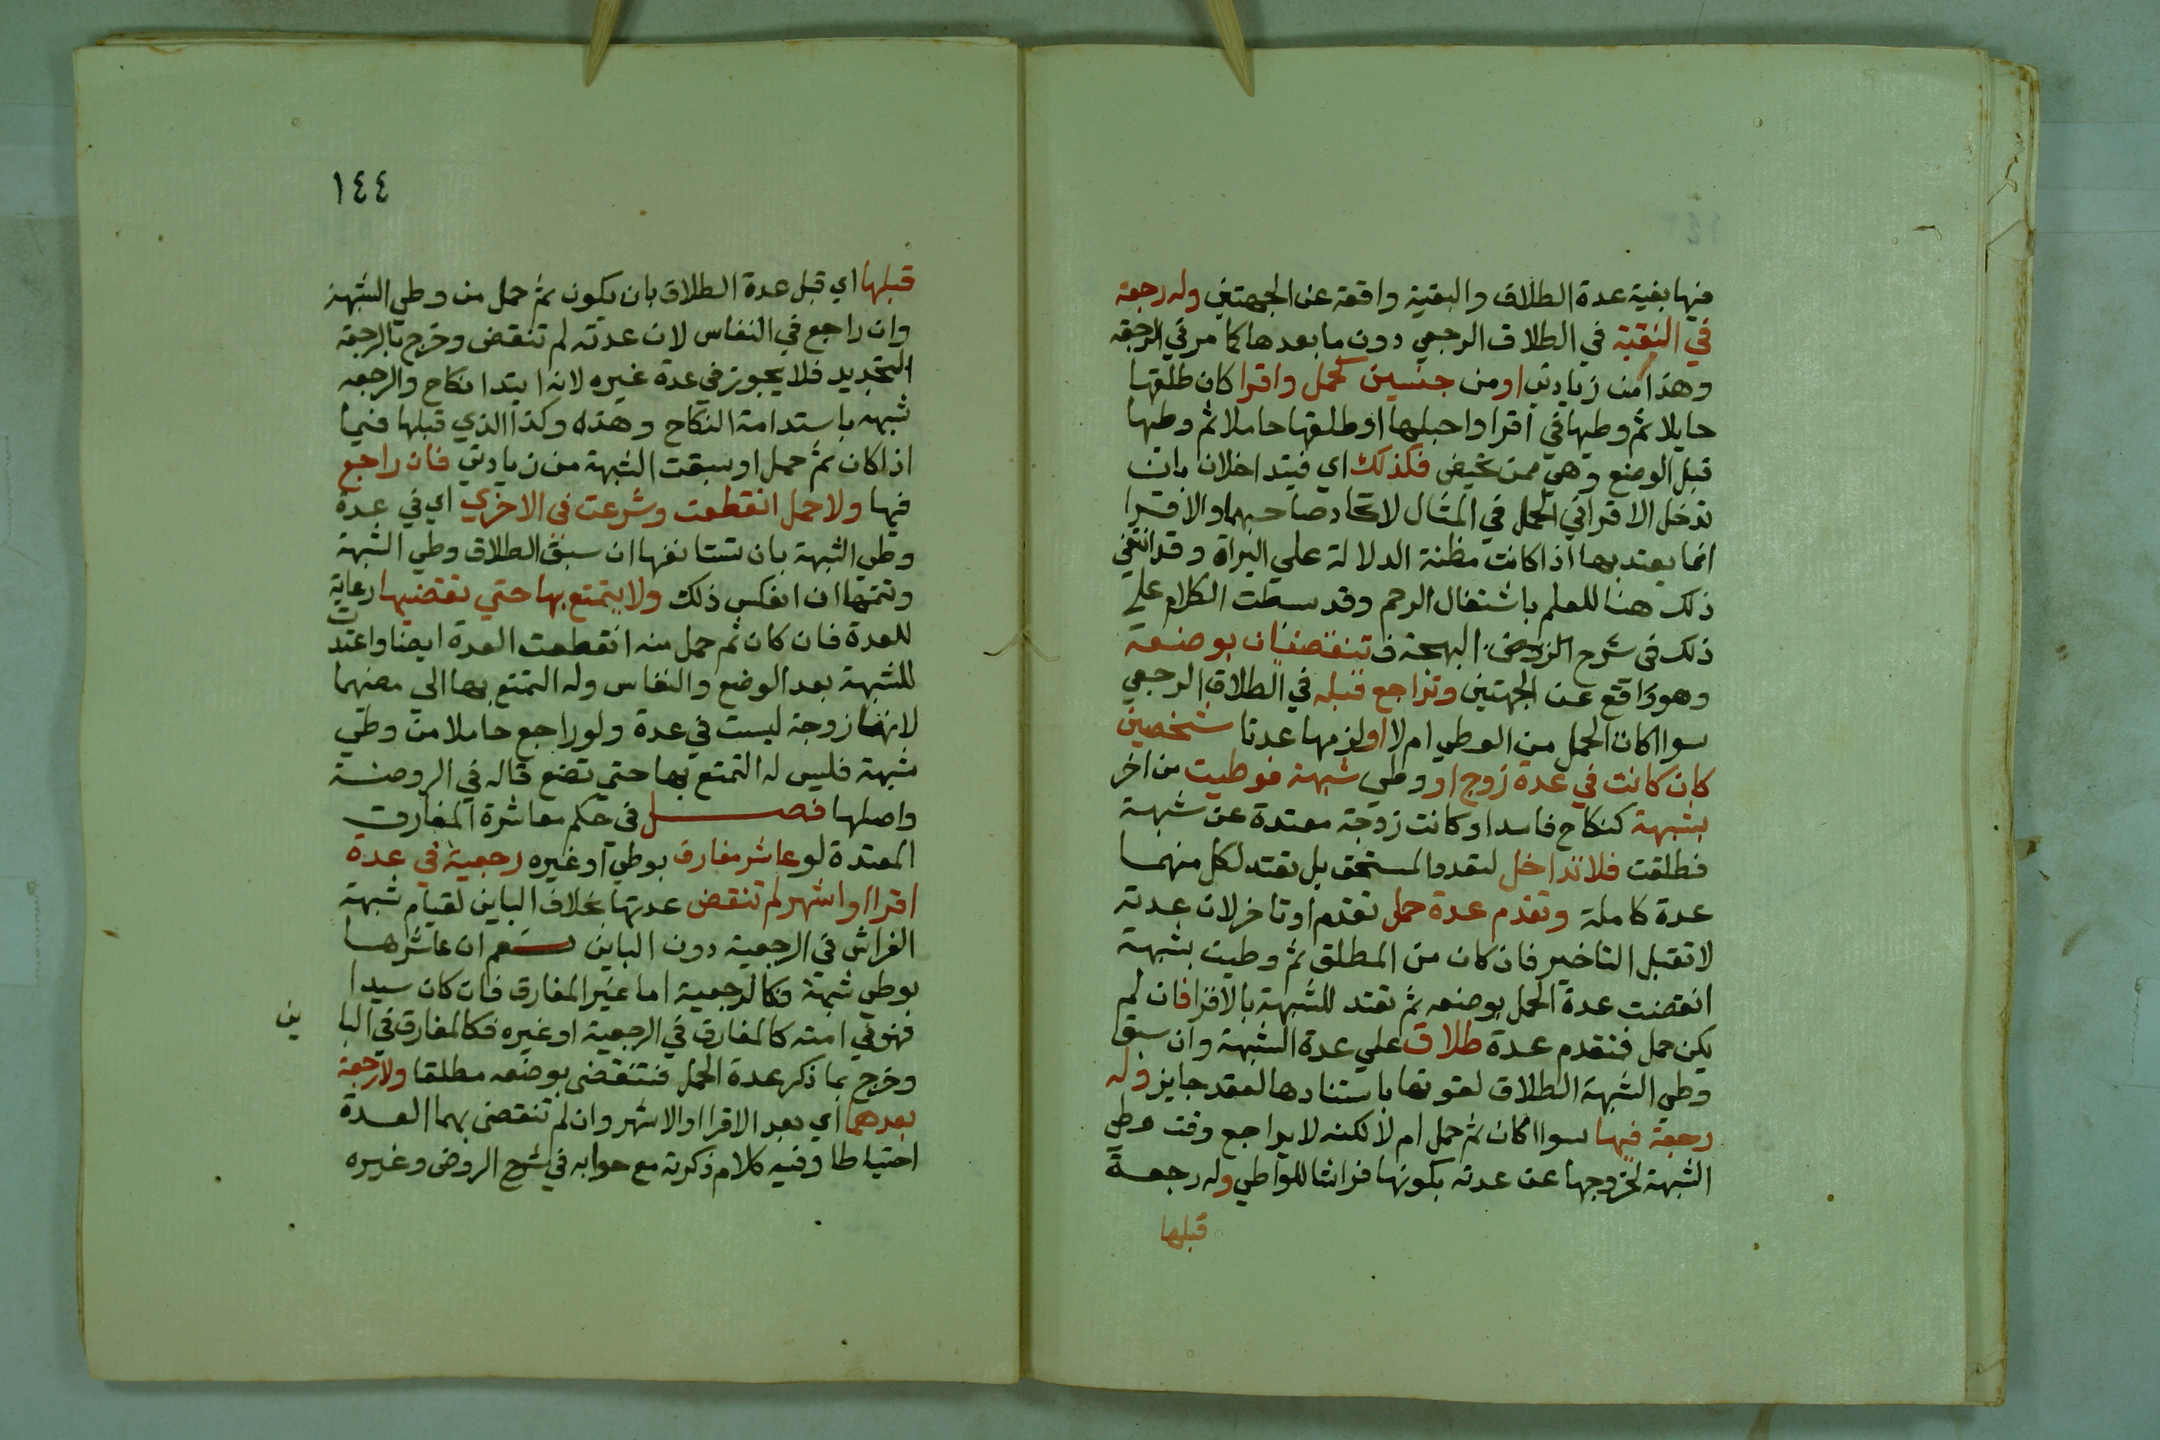 فيها بقية عدة الطلاق والبقية واقعة عن الجهتين وله رجعة
في البقية في الطلاق الرجعي دون ما بعدها كما مر في الرجعة
وهذا من زيادتي او من جنسين كحمل واقرا كان طلقها
حايلا ثم وطيها في اقرا واحبلها او طلقها حاملا ثم وطيها
قبل الوضع وهي ممن تحيض فكذلك اي فيتداخلان بان
تدخل الاقرا في الحمل في المثال لاتحاد صاحبهما والاقرا
انما يعتد بها اذا كانت مظنة الدلالة علي البراة وقد انتفي
ذلك هنا للعلم باشتغال الرحم وقد بسطت الكلام علي
ذلك في شرح البهجة فتنقضيان بوضعه
وهو واقع عن الجهتين وتراجع قبله في الطلاق الرجعي
سوا اكان الحمل من الوطي ام لا او لزمها عدتا شخصين
كان كانت في عدة زوج او وطي شبهة فوطيت من اخر
بشبهة كنكاح فاسد او كانت زوجة معتدة عن شبهة
فطلقت فلا تداخل لتعدد المستحق بل تعتد لكل منهما
عدة كاملة وتقدم عدة حمل تقدم او تاخر لان عدته
لا تقبل التاخير فان كان من المطلق ثم وطيت بشبهة
انقضت عدة الحمل بوضعه ثم تعتد للشبهة بالاقرا فان لم
يكن حمل فتقدم عدة طلاق علي عدة الشبهة وان سبق
وطي الشبهة الطلاق لقوتها باستنادها لعقد جايز وله
رجعة فيها سوا اكان ثم حمل ام لا لكنه لا يراجع وقت وطي
الشبهة لخروجها عن عدته بكونها فراشا للواطي وله رجعة
قبلها
١٤٤
قبلها اي قبل عدة الطلاق بان يكون ثم حمل من وطي الشبهة
وان راجع في النفاس لان عدته لم تنقض وخرج بالرجعة
التجديد فلا يجوز في عدة غيره لانه ابتدا نكاح والرجعة
شبهه باستدامة النكاح وهذه وكذا الذي قبلها فيما
اذا كان ثم حمل او سبقت الشبهة من زيادتي فان راجع
فيها ولا حمل انقطعت وشرعت في الاخري اي في عدة
وطي الشبهة بان تستانفها ان سبق الطلاق وطي الشبهة
وتتمها ان انعكس ذلك ولا يتمتع بها حتي تقضيها رعاية
للعدة فان كان ثم حمل منه انقطعت العدة ايضا واعتدت
للشبهة بعد الوضع والنفاس وله التمتع بها الي مضيهما
لانها زوجة ليست في عدة ولو راجع حاملا من وطي
شبهة فليس له التمتع بها حتي تضع قاله في الروضة
واصلها فصل في حكم معاشرة المفارق
المعتدة لو عاشر مفارق بوطي او غيره رجعية في عدة
اقرا او اشهر لم تنقض عدتها بخلاف الباين لقيام شبهة
الفراش في الرجعية دون الباين نعم ان عاشرها
بوطي شبهة فكالرجعية اما غير المفارق فان كان سيدا
فهو في امته كالمفارق في الرجعية او غيره فكالمفارق في البا
ين
وخرج بما ذكر عدة الحمل فتنقضي بوضعه مطلقا ولا رجعة
بعدهما اي بعد الاقرا او الاشهر وان لم تنقض بهما العدة
احتياطا وفيه كلام ذكرته مع جوابه في شرح الروض وغيره